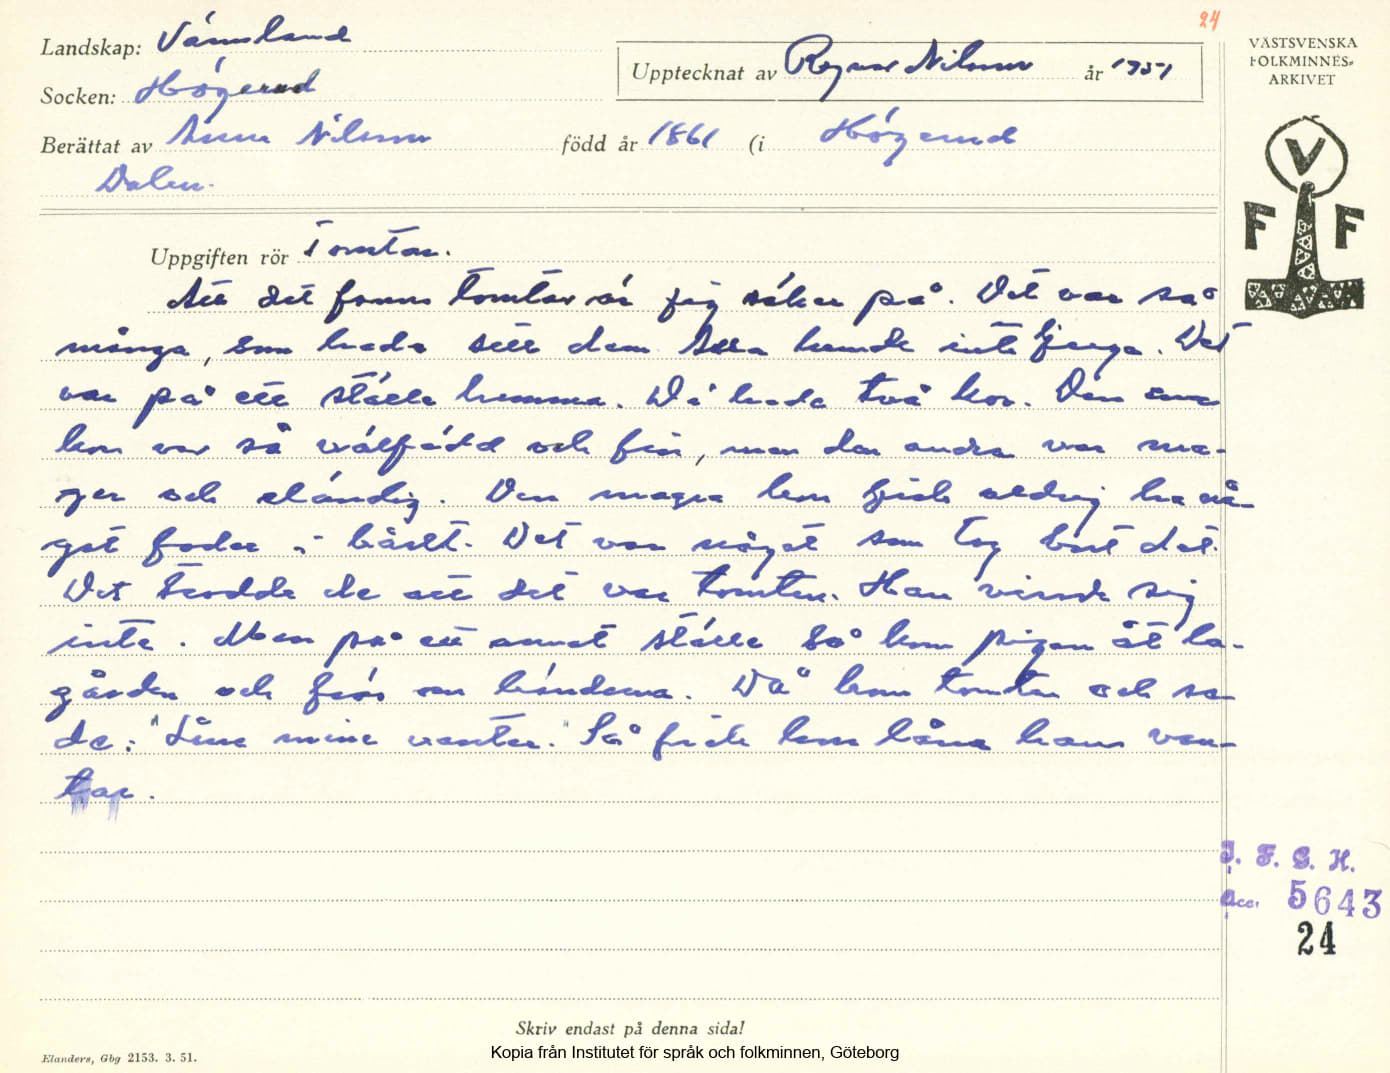 24
Landskap: Värmland
VÄSTSVENSKA
FOLKMINNES-
ARKIVET
Upptecknat av Ragnar Nilsson år 1951
Socken: Högerud
Berättat av Anna Nilsson född år 1861 (i Högerud
Dalen.
V
F F
Uppgiften rör Tomtar.
Att det fanns tomtar är jag säker på. Det var så
många, som hade sett dem. Alla kunde inte ljuga. Det
var på ett ställe hemma. Di hade två kor. Den ena
kon var så välfödd och fin, men den andra var ma-
ger och eländig. Den magra kon fick aldrig ha nå-
got foder i båset. Det var något som tog bort det.
Det trodde de att det var tomten. Han visade sig
inte. Men på ett annat ställe så kom pigan åt la-
gården och frös om händerna. Då kom tomten och sa-
de: "Låne mine vanter." Så fick hon låna hans van-
tar.
I. F. G. H.
Acc. 5643
24
Skriv endast på denna sida!
Elanders, Gbg 2153. 3. 51.
Kopia från Institutet för språk och folkminnen, Göteborg